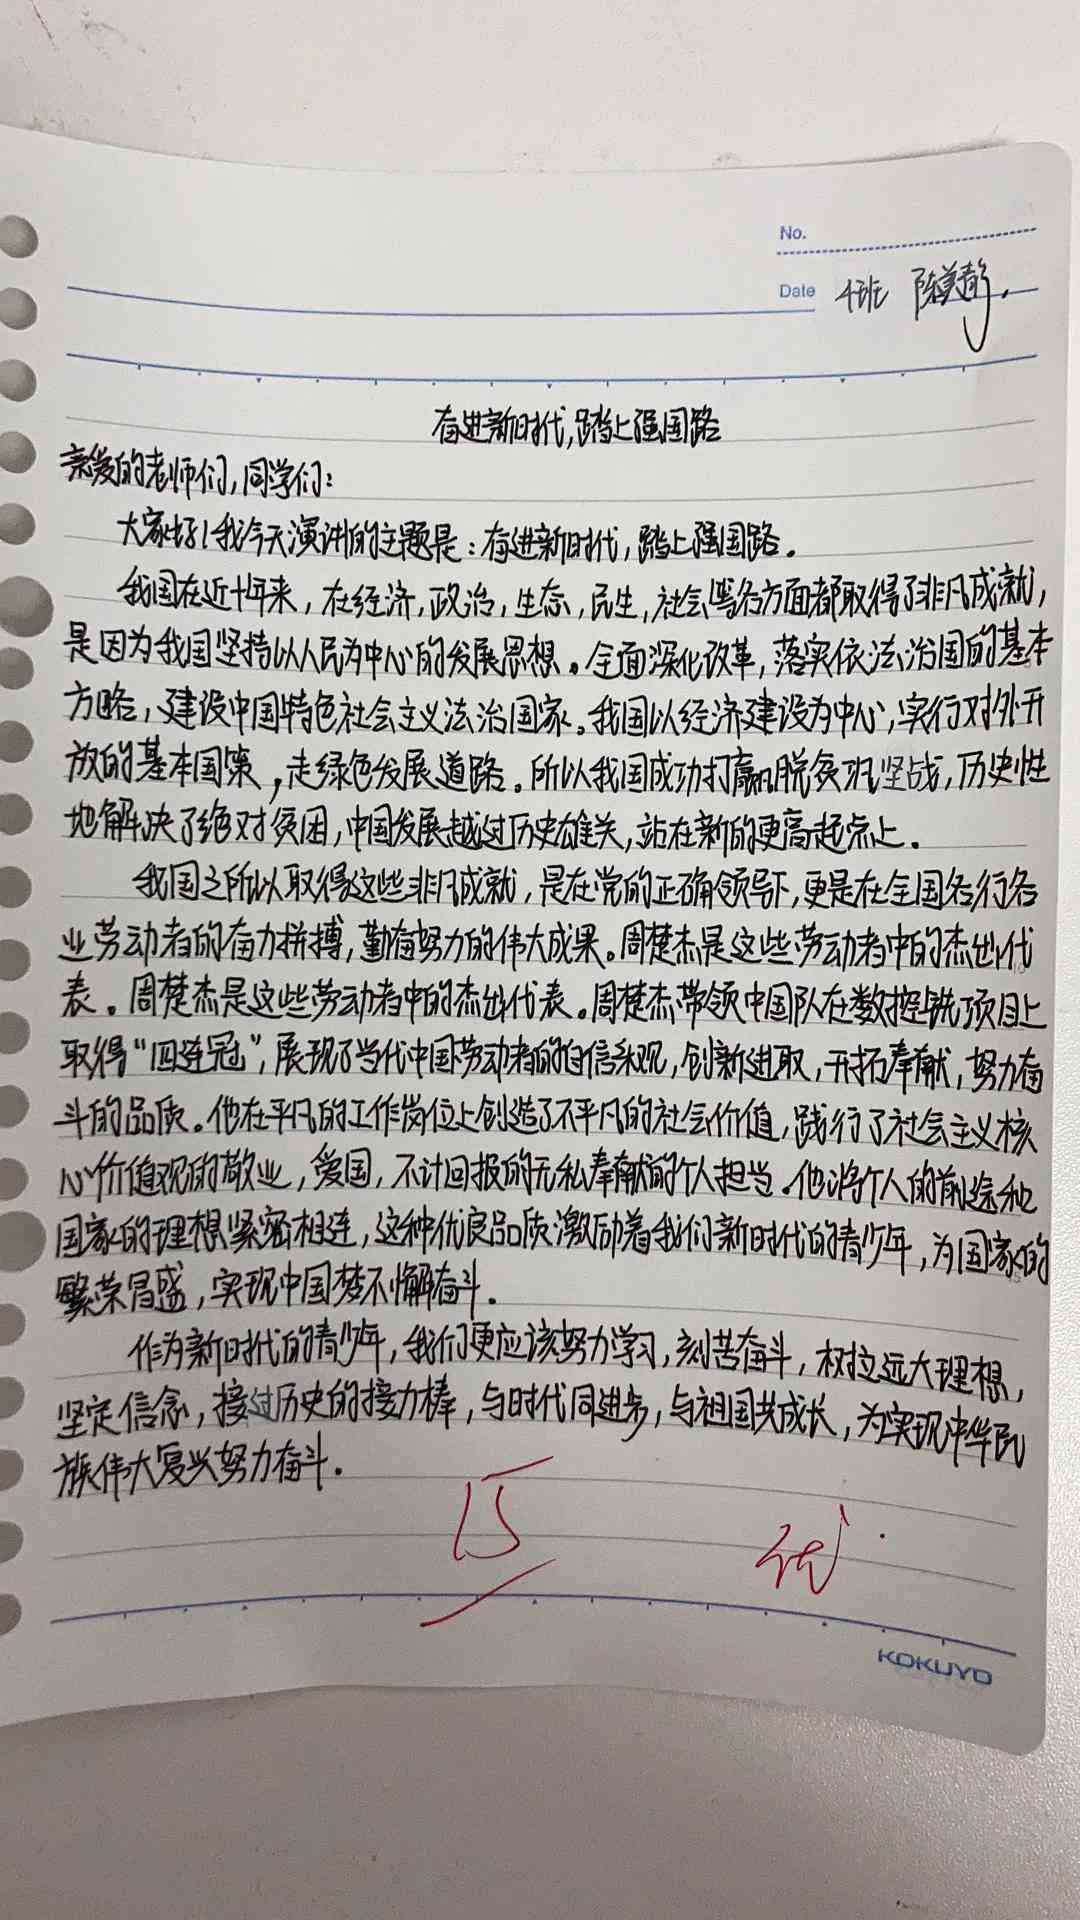 No.
Date 4班 陈美静.
奋进新时代,踏上强国路
亲爱的老师们,同学们:
大家好!我今天演讲的主题是:奋进新时代,踏上强国路.
我国在近十年来,在经济,政治,生态,民生,社会等各方面都取得了非凡成就,
是因为我国坚持以人民为中心的发展思想。全面深化改革,落实依法治国的基本
方略,建设中国特色社会主义法治国家。我国以经济建设为中心,实行对外开
放的基本国策,走绿色发展道路。所以我国成功打赢脱贫攻坚战,历史性
地解决了绝对贫困,中国发展越过历史雄关,站在新的更高起点上.
我国之所以取得这些非凡成就,是在党的正确领导下,更是在全国各行各
业劳动者的奋力拼搏,勤奋努力的伟大成果。周楚杰是这些劳动者中的杰出代
表。周楚杰是这些劳动者中的杰出代表。周楚杰带领中国队在数控铣项目上
取得“四连冠”,展现了当代中国劳动者的自信乐观,创新进取,开拓奉献,努力奋
斗的品质。他在平凡的工作岗位上创造了不平凡的社会价值,践行了社会主义核
心价值观的敬业,爱国,不计回报的无私奉献的个人担当.他将个人的前途和
国家的理想紧密相连,这种优良品质激励着我们新时代的青少年,为国家的
繁荣昌盛,实现中国梦不懈奋斗.
作为新时代的青少年,我们更应该努力学习,刻苦奋斗,树立远大理想,
坚定信念,接过历史的接力棒,与时代同进步,与祖国共成长,为实现中华民
族伟大复兴努力奋斗.
15 优.
KOKUYO